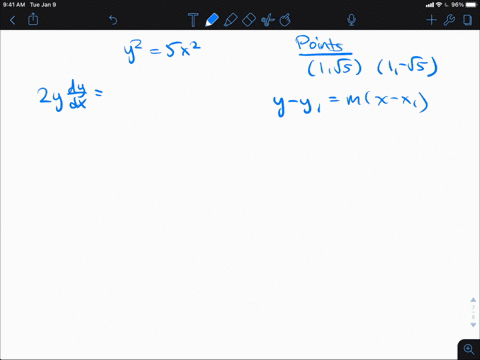 9:41 AM Tue Jan 9
96%
y² = 5x²
Points
(1,√5) (1,-√5)
2y dy/dx =
y-y₁ = m(x-x₁)